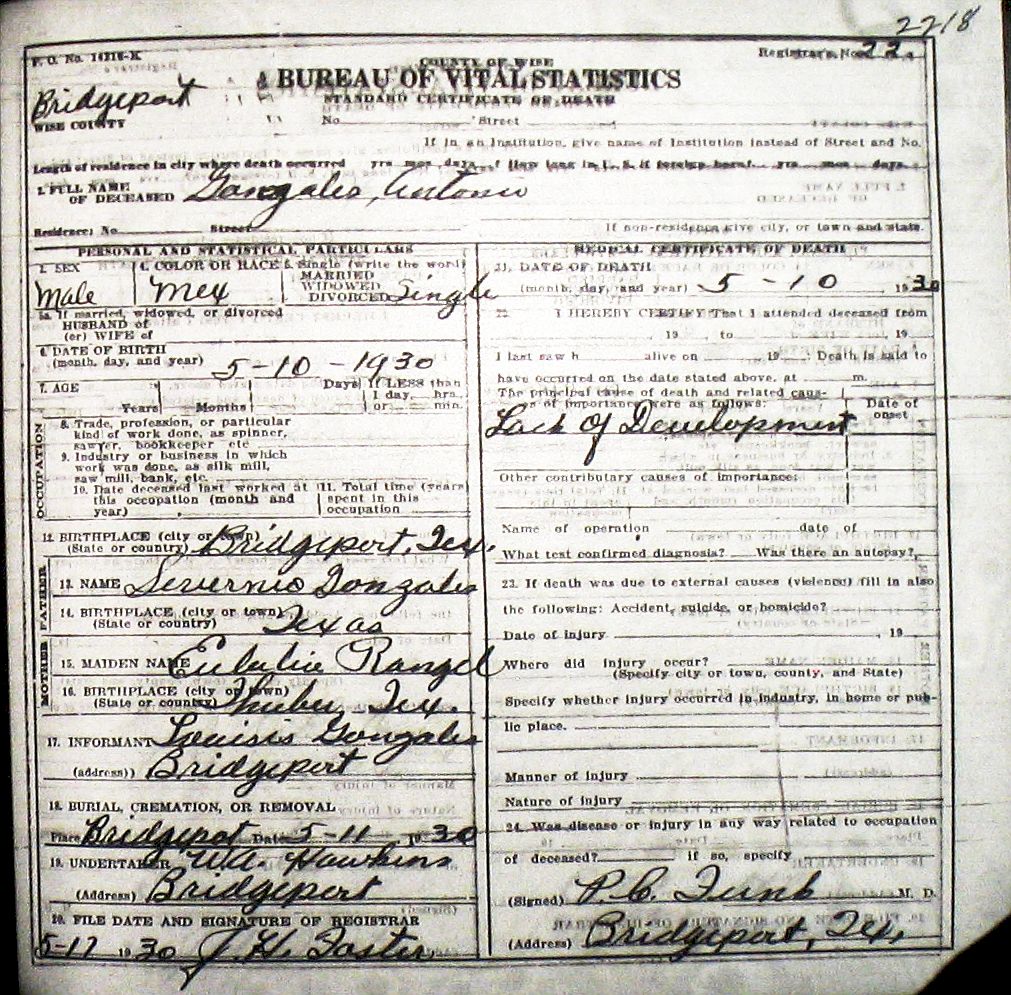 2218
F. O. No. 14216-K
Registrar's No. 22.
COUNTY OF WISE
BUREAU OF VITAL STATISTICS
STANDARD CERTIFICATE OF DEATH
Bridgeport
WISE COUNTY
No. Street
If in an Institution, give name of Institution instead of Street and No.
Length of residence in city where death occurred yrs mos days. How long in U. S. if foreign born? yrs. mos. days.
1. FULL NAME
OF DECEASED Gonzales, Antonio
Residence: No. Street
If non-residence give city, or town and state.
PERSONAL AND STATISTICAL PARTICULARS
3. SEX 4. COLOR OR RACE 5. Single (write the word)
MARRIED
WIDOWED
DIVORCED Single
Male Mex
5a. If married, widowed, or divorced
HUSBAND of
(or) WIFE of
6. DATE OF BIRTH
(month, day, and year) 5-10-1930
7. AGE Years Months Days If LESS than
1 day, hrs.
or min.
OCCUPATION
8. Trade, profession, or particular
kind of work done, as spinner,
sawyer, bookkeeper etc
9. Industry or business in which
work was done, as silk mill,
saw mill, bank, etc.
10. Date deceased last worked at
this occupation (month and
year)
11. Total time (years
spent in this
occupation
12. BIRTHPLACE (city or town)
(State or country) Bridgeport, Tex.
FATHER
13. NAME Severnio Gonzales
14. BIRTHPLACE (city or town)
(State or country) Texas
MOTHER
15. MAIDEN NAME Eulalie Rangel
16. BIRTHPLACE (city or town)
(State or country) Thuber, Tex.
17. INFORMANT Gonzales
(address)) Bridgeport
18. BURIAL, CREMATION, OR REMOVAL
Place Bridgepot Date 5-11 1930
19. UNDERTAKER W.A. Hawkins
(Address) Bridgeport
20. FILE DATE AND SIGNATURE OF REGISTRAR
5-17 1930 J. H. Foster
MEDICAL CERTIFICATE OF DEATH
21. DATE OF DEATH
(month, day, and year) 5-10 1930
22. I HEREBY CERTIFY That I attended deceased from
19 , to , 19 .
I last saw h alive on 19 . Death is said to
have occurred on the date stated above, at m.
The principal cause of death and related causes
of importance were as follows: Date of
onset
Lack Of Development
Other contributory causes of importance:
Name of operation date of
What test confirmed diagnosis? Was there an autopsy?
23. If death was due to external causes (violence) fill in also
the following: Accident, suicide, or homicide?
Date of injury , 19
Where did injury occur?
(Specify city or town, county, and State)
Specify whether injury occurred in industry, in home or pub-
lic place.
Manner of injury
Nature of injury
24. Was disease or injury in any way related to occupation
of deceased? if so, specify
(Signed) P. C. Funk M. D.
(Address) Bridgeport, Tex.